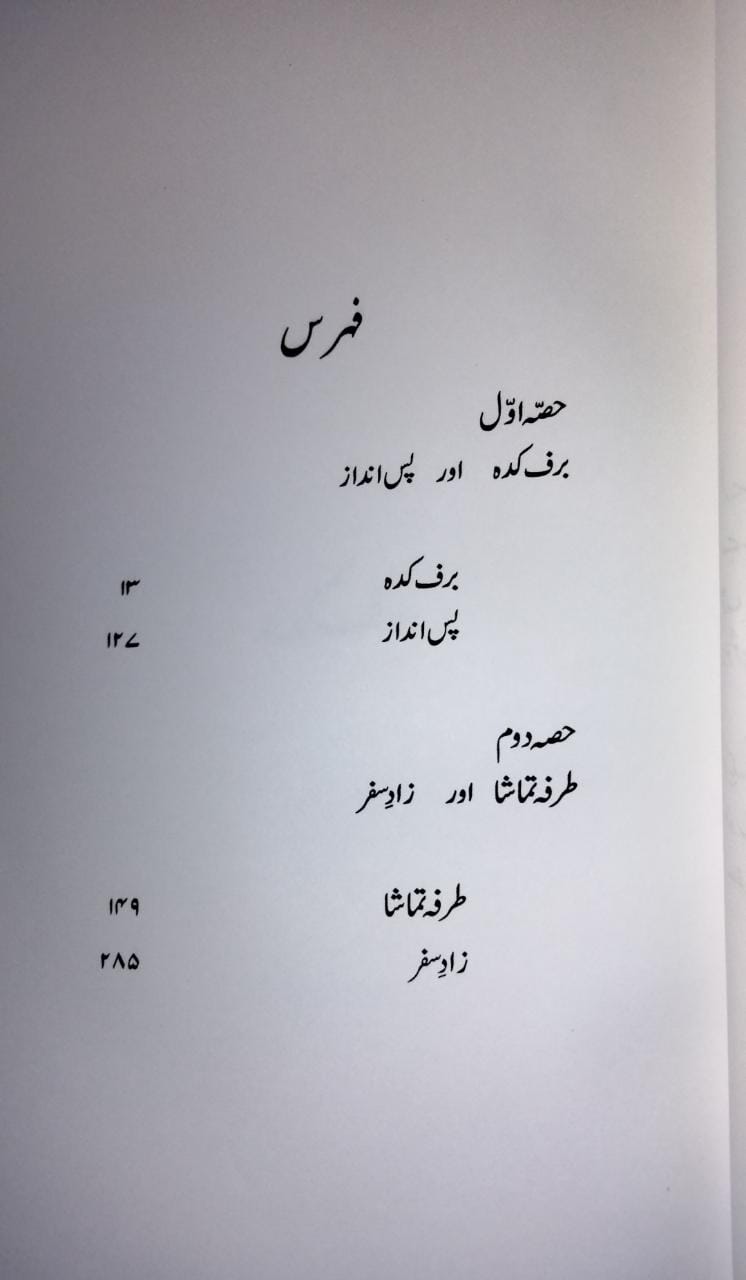 فہرس
حصّہ اوّل
برف کدہ اور پس انداز
برف کدہ ۱۳
پس انداز ۱۲۷
حصہ دوم
طرفہ تماشا اور زادِ سفر
طرفہ تماشا ۱۴۹
زادِ سفر ۲۸۵